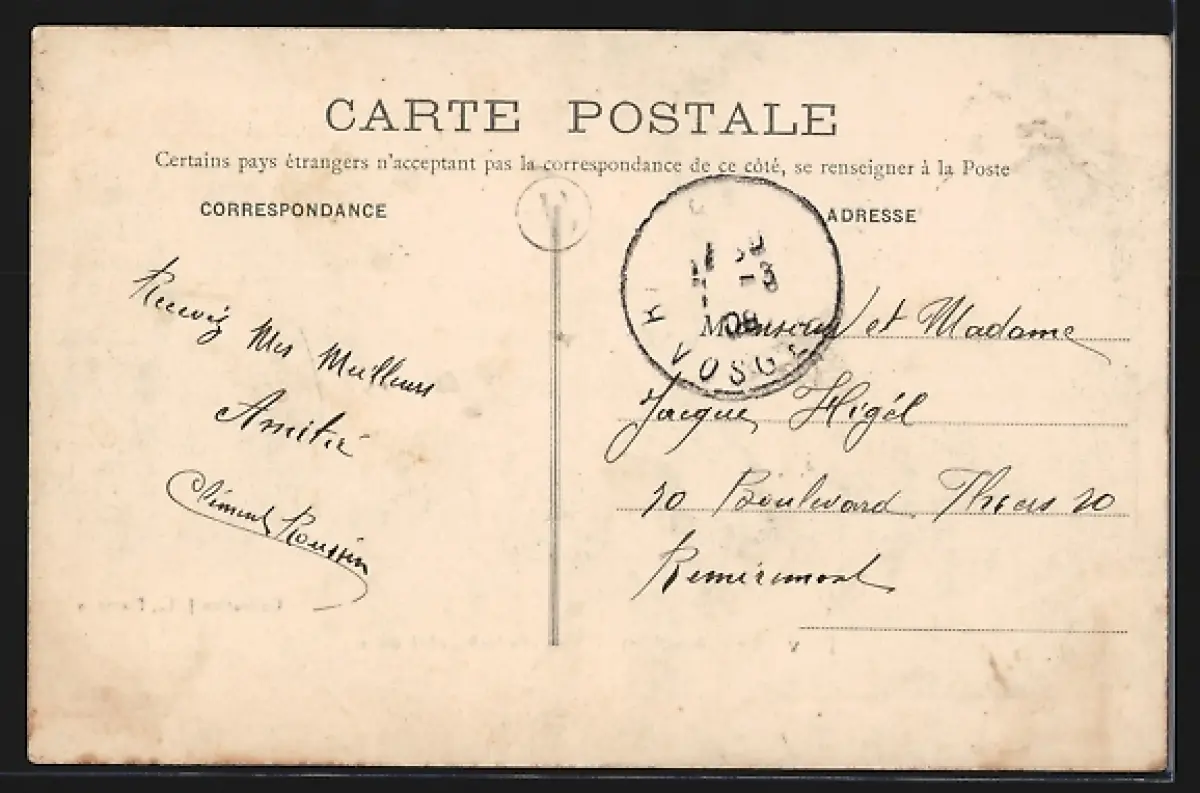 CARTE POSTALE
Certains pays étrangers n'acceptant pas la correspondance de ce côté, se renseigner à la Poste
CORRESPONDANCE
ADRESSE
Recevez Mes Meilleurs
Amitié
Clément Roussin
-3
08
VOSGES
Monsieur et Madame
Jacque Higél
20 Boulevard Thiers 20
Remiremont